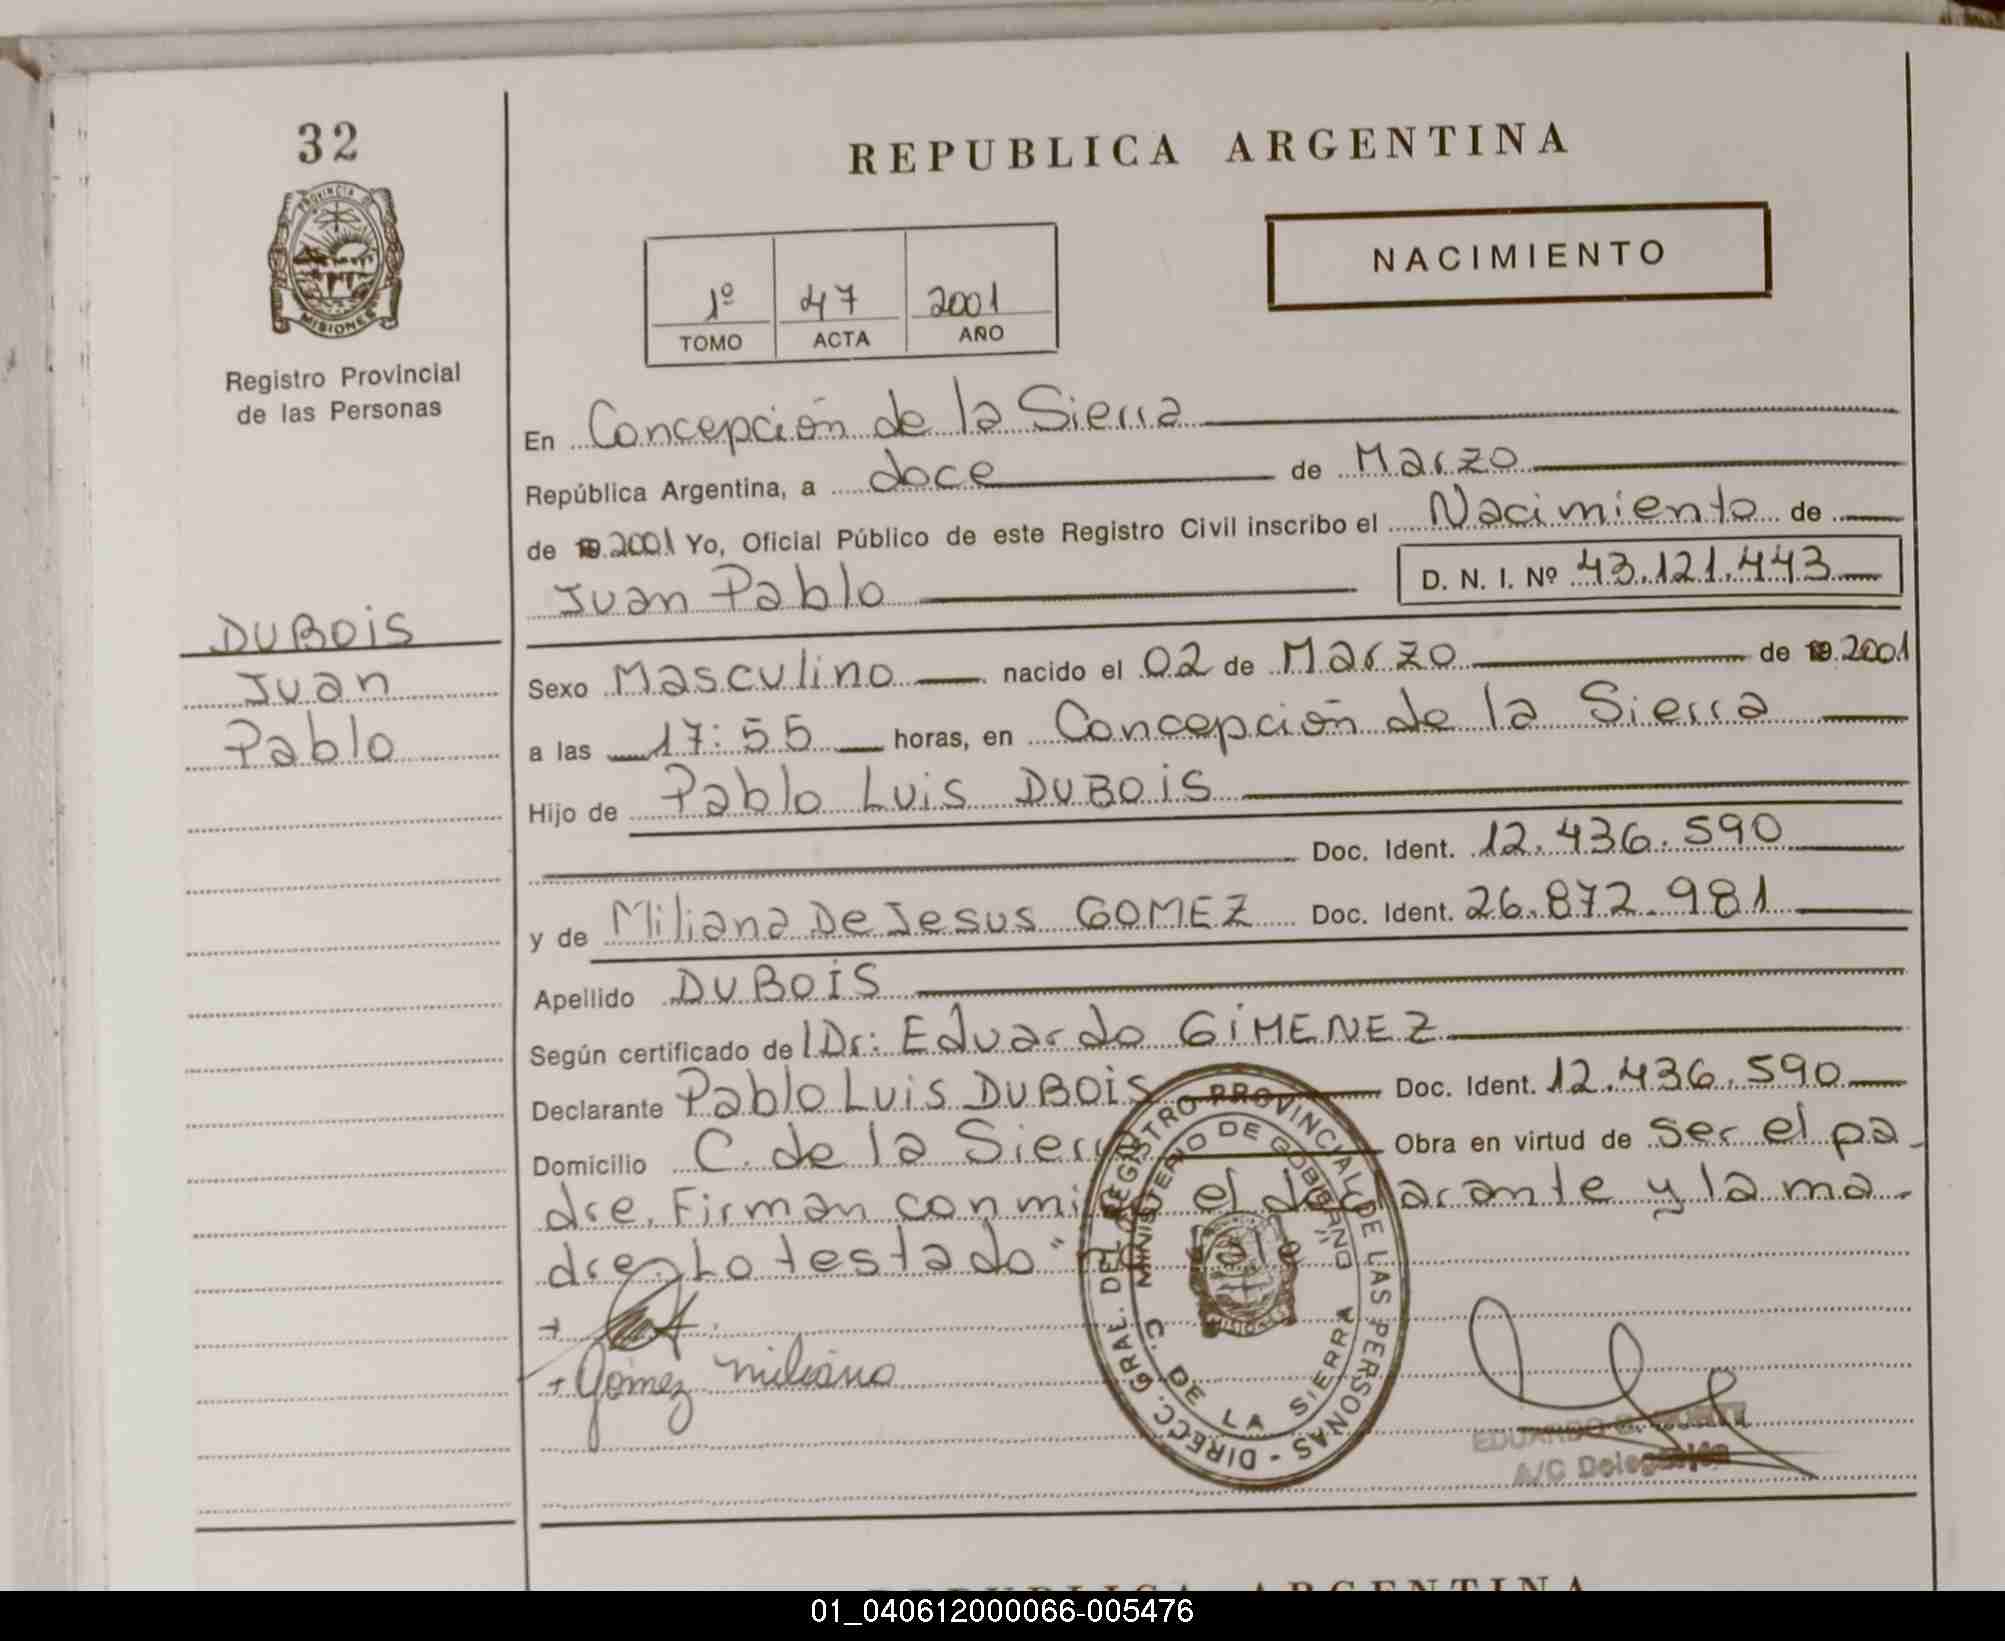 32
PROVINCIA DE
MISIONES
Registro Provincial
de las Personas
DUBOIS
Juan
Pablo
REPUBLICA ARGENTINA
NACIMIENTO
1º 47 2001
TOMO ACTA AÑO
En Concepción de la Sierra
República Argentina, a doce de Marzo
de 19 2001 Yo, Oficial Público de este Registro Civil inscribo el Nacimiento de
Juan Pablo D. N. I. Nº 43.121.443
Sexo Masculino nacido el 02 de Marzo de 19 2001
a las 17:55 horas, en Concepción de la Sierra
Hijo de Pablo Luis DUBOIS
Doc. Ident. 12.436.590
y de Miliana De Jesus GOMEZ Doc. Ident. 26.872.981
Apellido DUBOIS
Según certificado del Dr: Eduardo GIMENEZ
Declarante Pablo Luis DUBOIS Doc. Ident. 12.436.590
Domicilio C. de la Sierra Obra en virtud de ser el pa-
dre. Firman conmigo el declarante y la ma-
dre. Lo testado "
Gómez Miliana
DIRECC. GRAL. DEL REGISTRO PROVINCIAL DE LAS PERSONAS -
MINISTERIO DE GOBIERNO
C. DE LA SIERRA
MISIONES
EDUARDO
A/C Delegación
REPUBLICA ARGENTINA
01_040612000066-005476